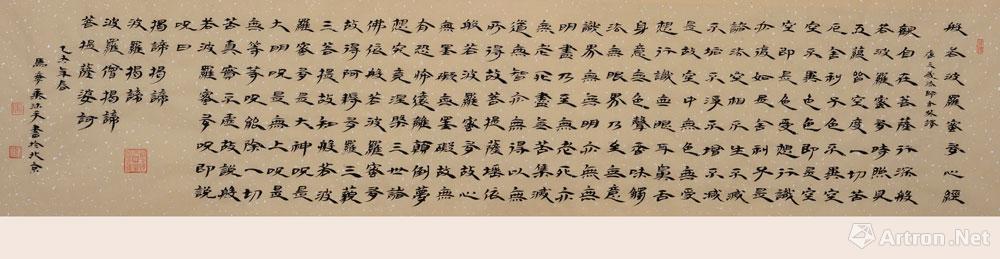 般若波羅蜜多心經
唐玄奘法師奉詔譯
觀自在菩薩行深般
若波羅蜜多時照見
五蘊皆空度一切苦
厄舍利子色不異空
空不異色色即是空
空即是色受想行識
亦復如是舍利子是
諸法空相不生不滅
不垢不淨不增不減
是故空中無色無受
想行識無眼耳鼻舌
身意無色聲香味觸
法無眼界乃至無意
識界無無明亦無無
明盡乃至無老死亦
無老死盡無苦集滅
道無智亦無得以無
所得故菩提薩埵依
般若波羅蜜多故心
無罣礙無罣礙故無
有恐怖遠離顛倒夢
想究竟涅槃三世諸
佛依般若波羅蜜多
故得阿耨多羅三藐
三菩提故知般若波
羅蜜多是大神咒是
大明咒是無上咒是
無等等咒能除一切
苦真實不虛故說般
若波羅蜜多咒即說
咒曰
揭諦揭諦
波羅揭諦
波羅僧揭諦
菩提薩婆訶
乙未年春
書於北京
雅昌藝術網
Artron.Net